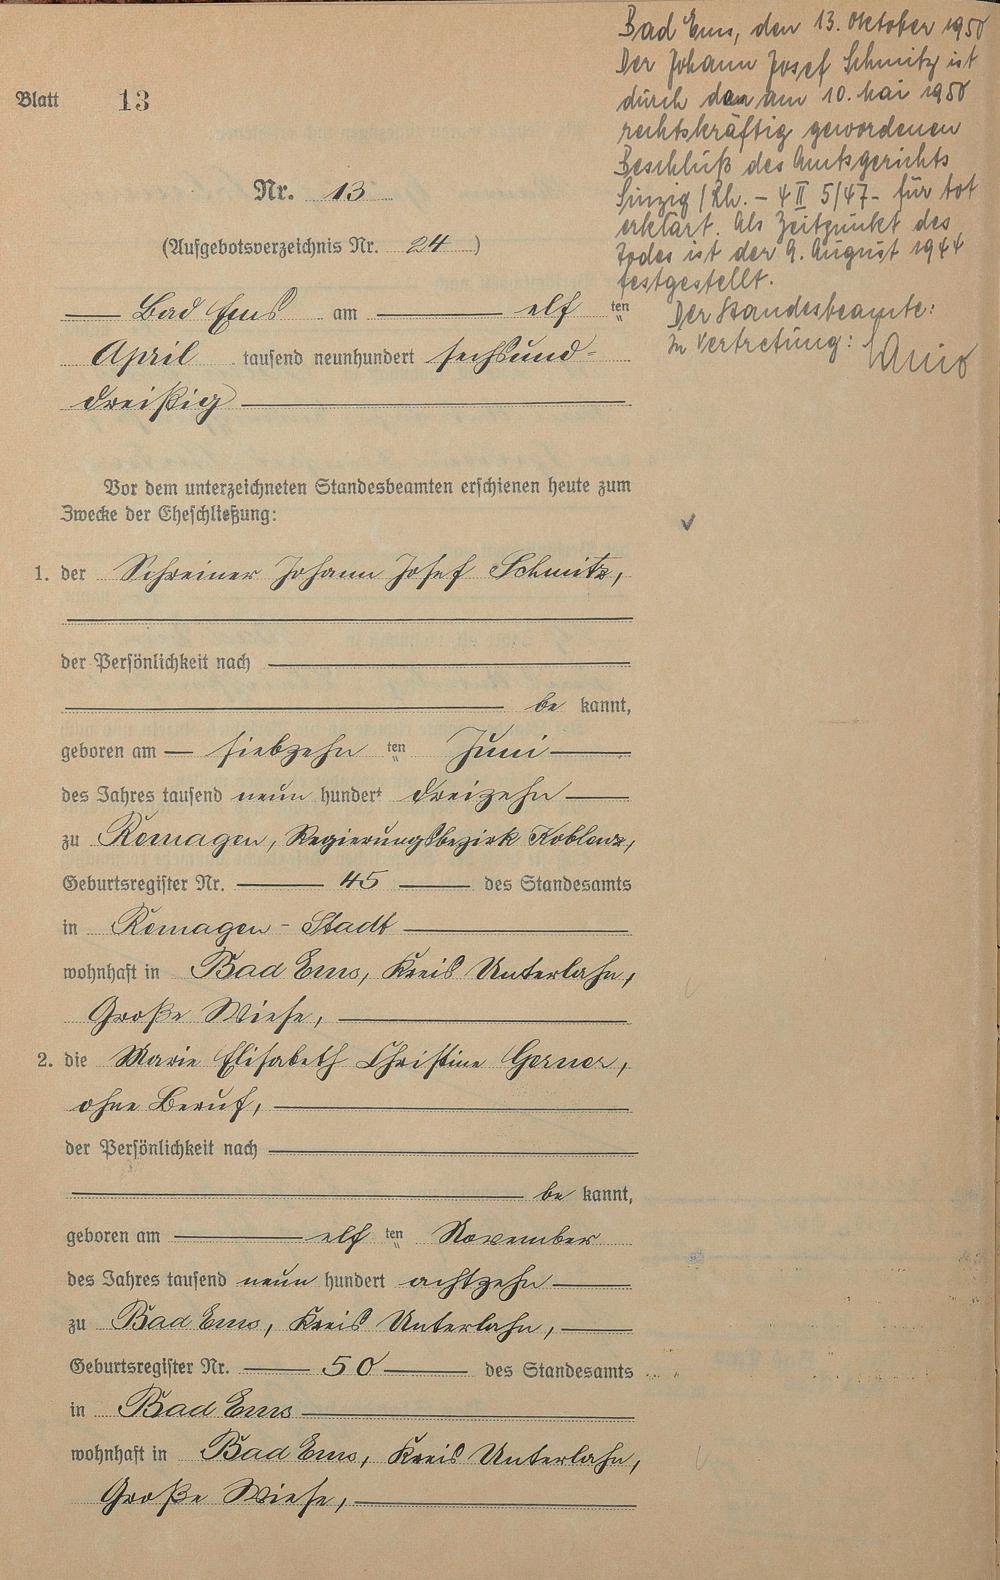 Bad Ems, den 13. Oktober 1950
Der Johann Josef Schmitz ist
durch den am 10. Mai 1950
rechtskräftig gewordenen
Beschluß des Amtsgerichts
Sinzig/Rh. - 4 II 5/47 - für tot
erklärt. Als Zeitpunkt des
Todes ist der 9. August 1944
festgestellt.
Der Standesbeamte:
In Vertretung:
Blatt 13
Nr. 13
(Aufgebotsverzeichnis Nr. 24)
Bad Ems am elf ten
April tausend neunhundert sechsund-
dreißig
Vor dem unterzeichneten Standesbeamten erschienen heute zum
Zwecke der Eheschließung:
1. der Schreiner Johann Josef Schmitz,
der Persönlichkeit nach
be kannt,
geboren am siebzehn ten Juni
des Jahres tausend neun hundert dreizehn
zu Remagen, Regierungsbezirk Koblenz,
Geburtsregister Nr. 45 des Standesamts
in Remagen-Stadt
wohnhaft in Bad Ems, Kreis Unterlahn,
Große Wiese,
2. die Marie Elisabeth Christine Gerner,
ohne Beruf,
der Persönlichkeit nach
be kannt,
geboren am elf ten November
des Jahres tausend neun hundert achtzehn
zu Bad Ems, Kreis Unterlahn,
Geburtsregister Nr. 50 des Standesamts
in Bad Ems
wohnhaft in Bad Ems, Kreis Unterlahn,
Große Wiese,